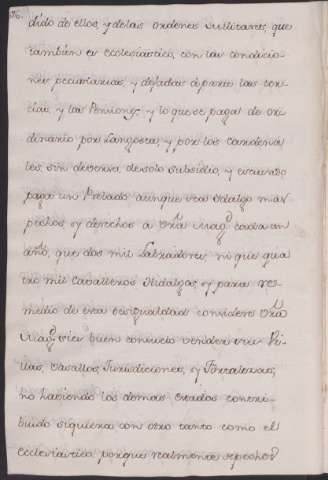 dido de ellos, y de las ordenes Militares, que
tambien es eclesiastico, con las condicio-
nes pecuniarias, y dejadas aparte las ter-
cias, y las Penciones, y lo que se paga de or-
dinario por Langosta, y por los cardena
les, sin decirse, de solo subsidio, y escusado
paga un Prelado aunque sea Hidalgo mas
pechos y derechos a Vra Magd cada un
año, que dos mil Labradores ni que qua
tro mil cavalleros Hidalgos, y para re-
medio de esta desigualdad considere Vra
Magd si es buen consuelo vender sus Vi-
llas, Vasallos, Jurisdiciones, y Fortalezas,
no habiendo los demas estados contri-
buido siquiera con otro tanto como el
ecclesiastico, porque realmente se pechos